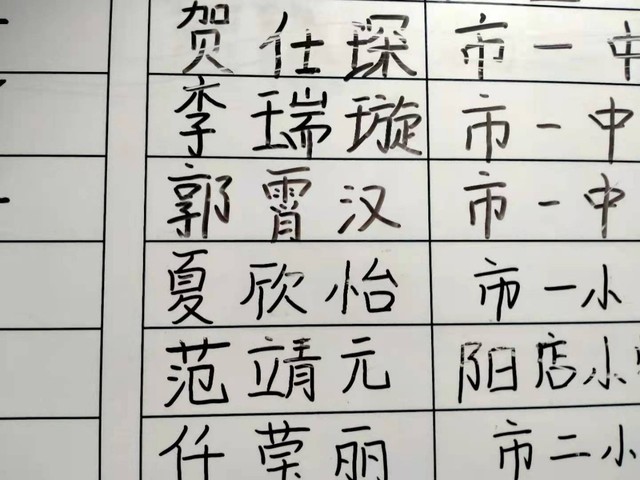 贺仕琛 市一中
李瑞璇 市一中
郭霄汉 市一中
夏欣怡 市一小
范靖元 阳店小
仟荣丽 市二小